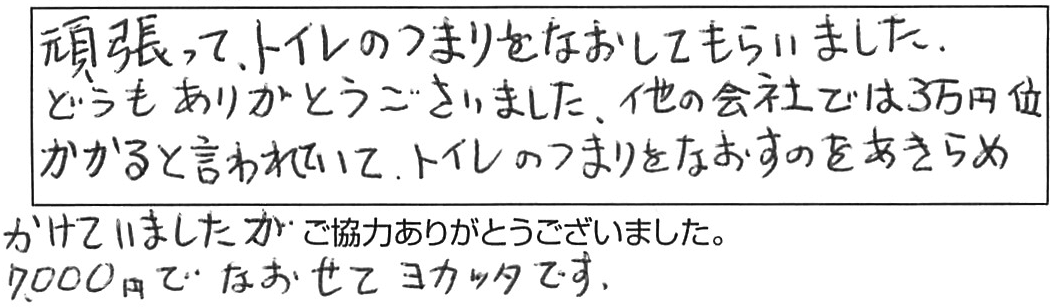 頑張って、トイレのつまりをなおしてもらいました.
どうもありがとうございました、他の会社では3万円位
かかると言われていて、トイレのつまりをなおすのをあきらめ
かけていましたが ご協力ありがとうございました。
7,000円で なおせて ヨカッタです.